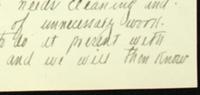 needs cleaning and
of unnecessary work.
to do at present with
and we will then know